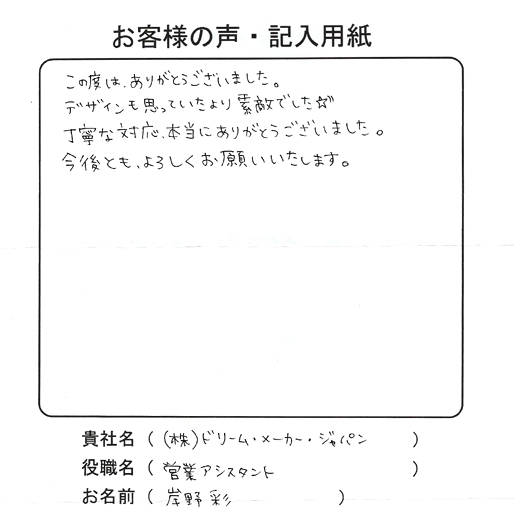 お客様の声・記入用紙
この度は、ありがとうございました。
デザインも思っていたより素敵でした☆
丁寧な対応、本当にありがとうございました。
今後とも、よろしくお願いいたします。
貴社名 ( (株)ドリーム・メーカー・ジャパン )
役職名 ( 営業アシスタント )
お名前 ( 岸野 彩 )